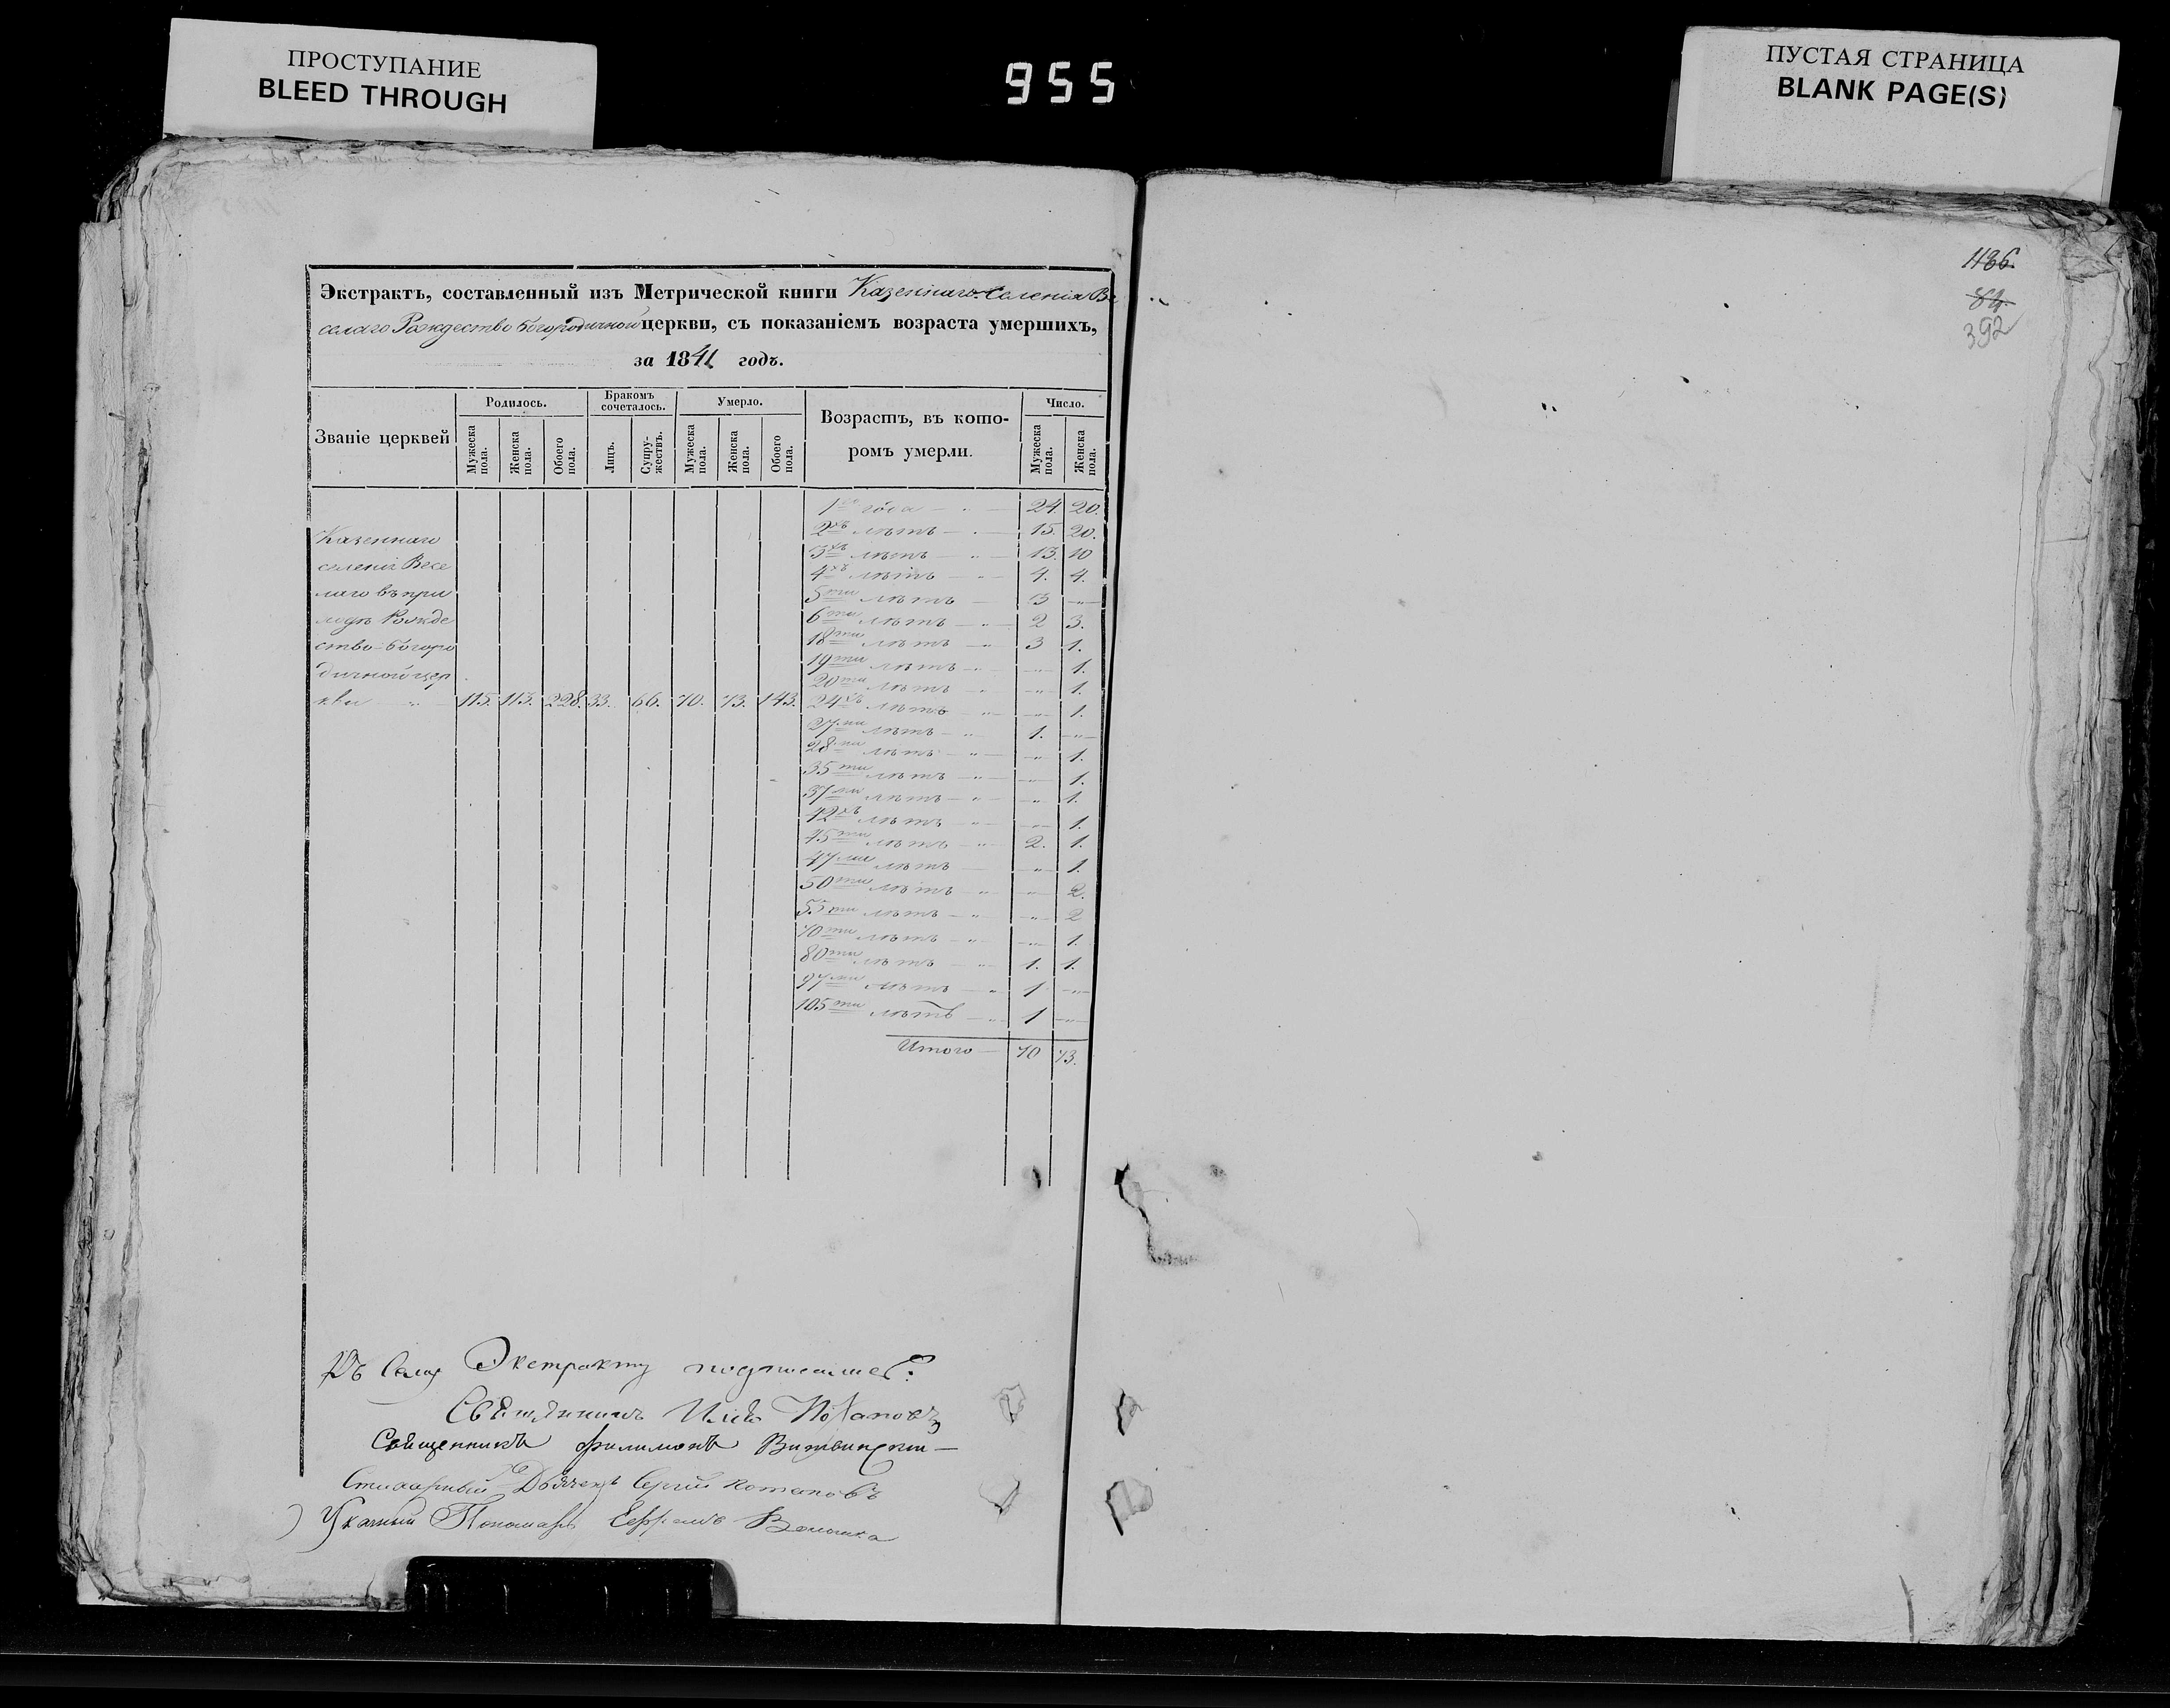 ПРОСТУПАНИЕ
BLEED THROUGH
955
ПУСТАЯ СТРАНИЦА
BLANK PAGE(S)
1186.
84.
392
Экстрактъ, составленный изъ Метрической книги Казеннаго Селенія Ве
селаго Рождество Богородичной церкви, съ показаніемъ возраста умершихъ,
за 1841 годъ.
Званіе церквей
Родилось.
Бракомъ сочеталось.
Умерло.
Возрастъ, въ кото-
ромъ умерли.
Число.
Мужеска пола.
Женска пола.
Обоего пола.
Лицъ.
Супру-жествъ.
Мужеска пола.
Женска пола.
Обоего пола.
Мужеска пола.
Женска пола.
Казеннаго
селенія Весе
лаго въ при
ходѣ Рождe
ство-Богоро
дичной цер
кви — „ — 115. 113. 228. 33. 66. 70. 73. 143.
1го года — „ — 24. 20.
2хъ лѣтъ — „ — 15. 20.
3хъ лѣтъ — „ — 13. 10
4хъ лѣтъ — „ — 4. 4.
5ти лѣтъ — 3 — „ —
6ти лѣтъ — „ — 2 3.
18ти лѣтъ — „ 3 1.
19ти лѣтъ — „ — „ — 1.
20ти лѣтъ — „ — „ — 1.
24хъ лѣтъ — „ — „ — 1.
27ми лѣтъ — „ 1. — „ —
28ми лѣтъ — „ — „ — 1.
35ти лѣтъ — „ — „ — 1.
37ми лѣтъ — „ — „ — 1.
42хъ лѣтъ — „ — „ — 1.
45ти лѣтъ — „ 2. 1.
47ми лѣтъ — „ — 1.
50ти лѣтъ — „ — „ — 2.
55ти лѣтъ — „ — „ — 2
70ти лѣтъ — „ — „ — 1.
80ти лѣтъ — „ 1. 1.
97ми лѣтъ — „ 1 — „ —
105ти лѣтъ — „ 1 — „ —
Итого — 70 73.
Къ Сему Экстракту подписались:
Священникъ Потаповъ
Священникъ Филимонъ
Стихарный Дьячекъ Сергій Потаповъ
Указный Пономарь